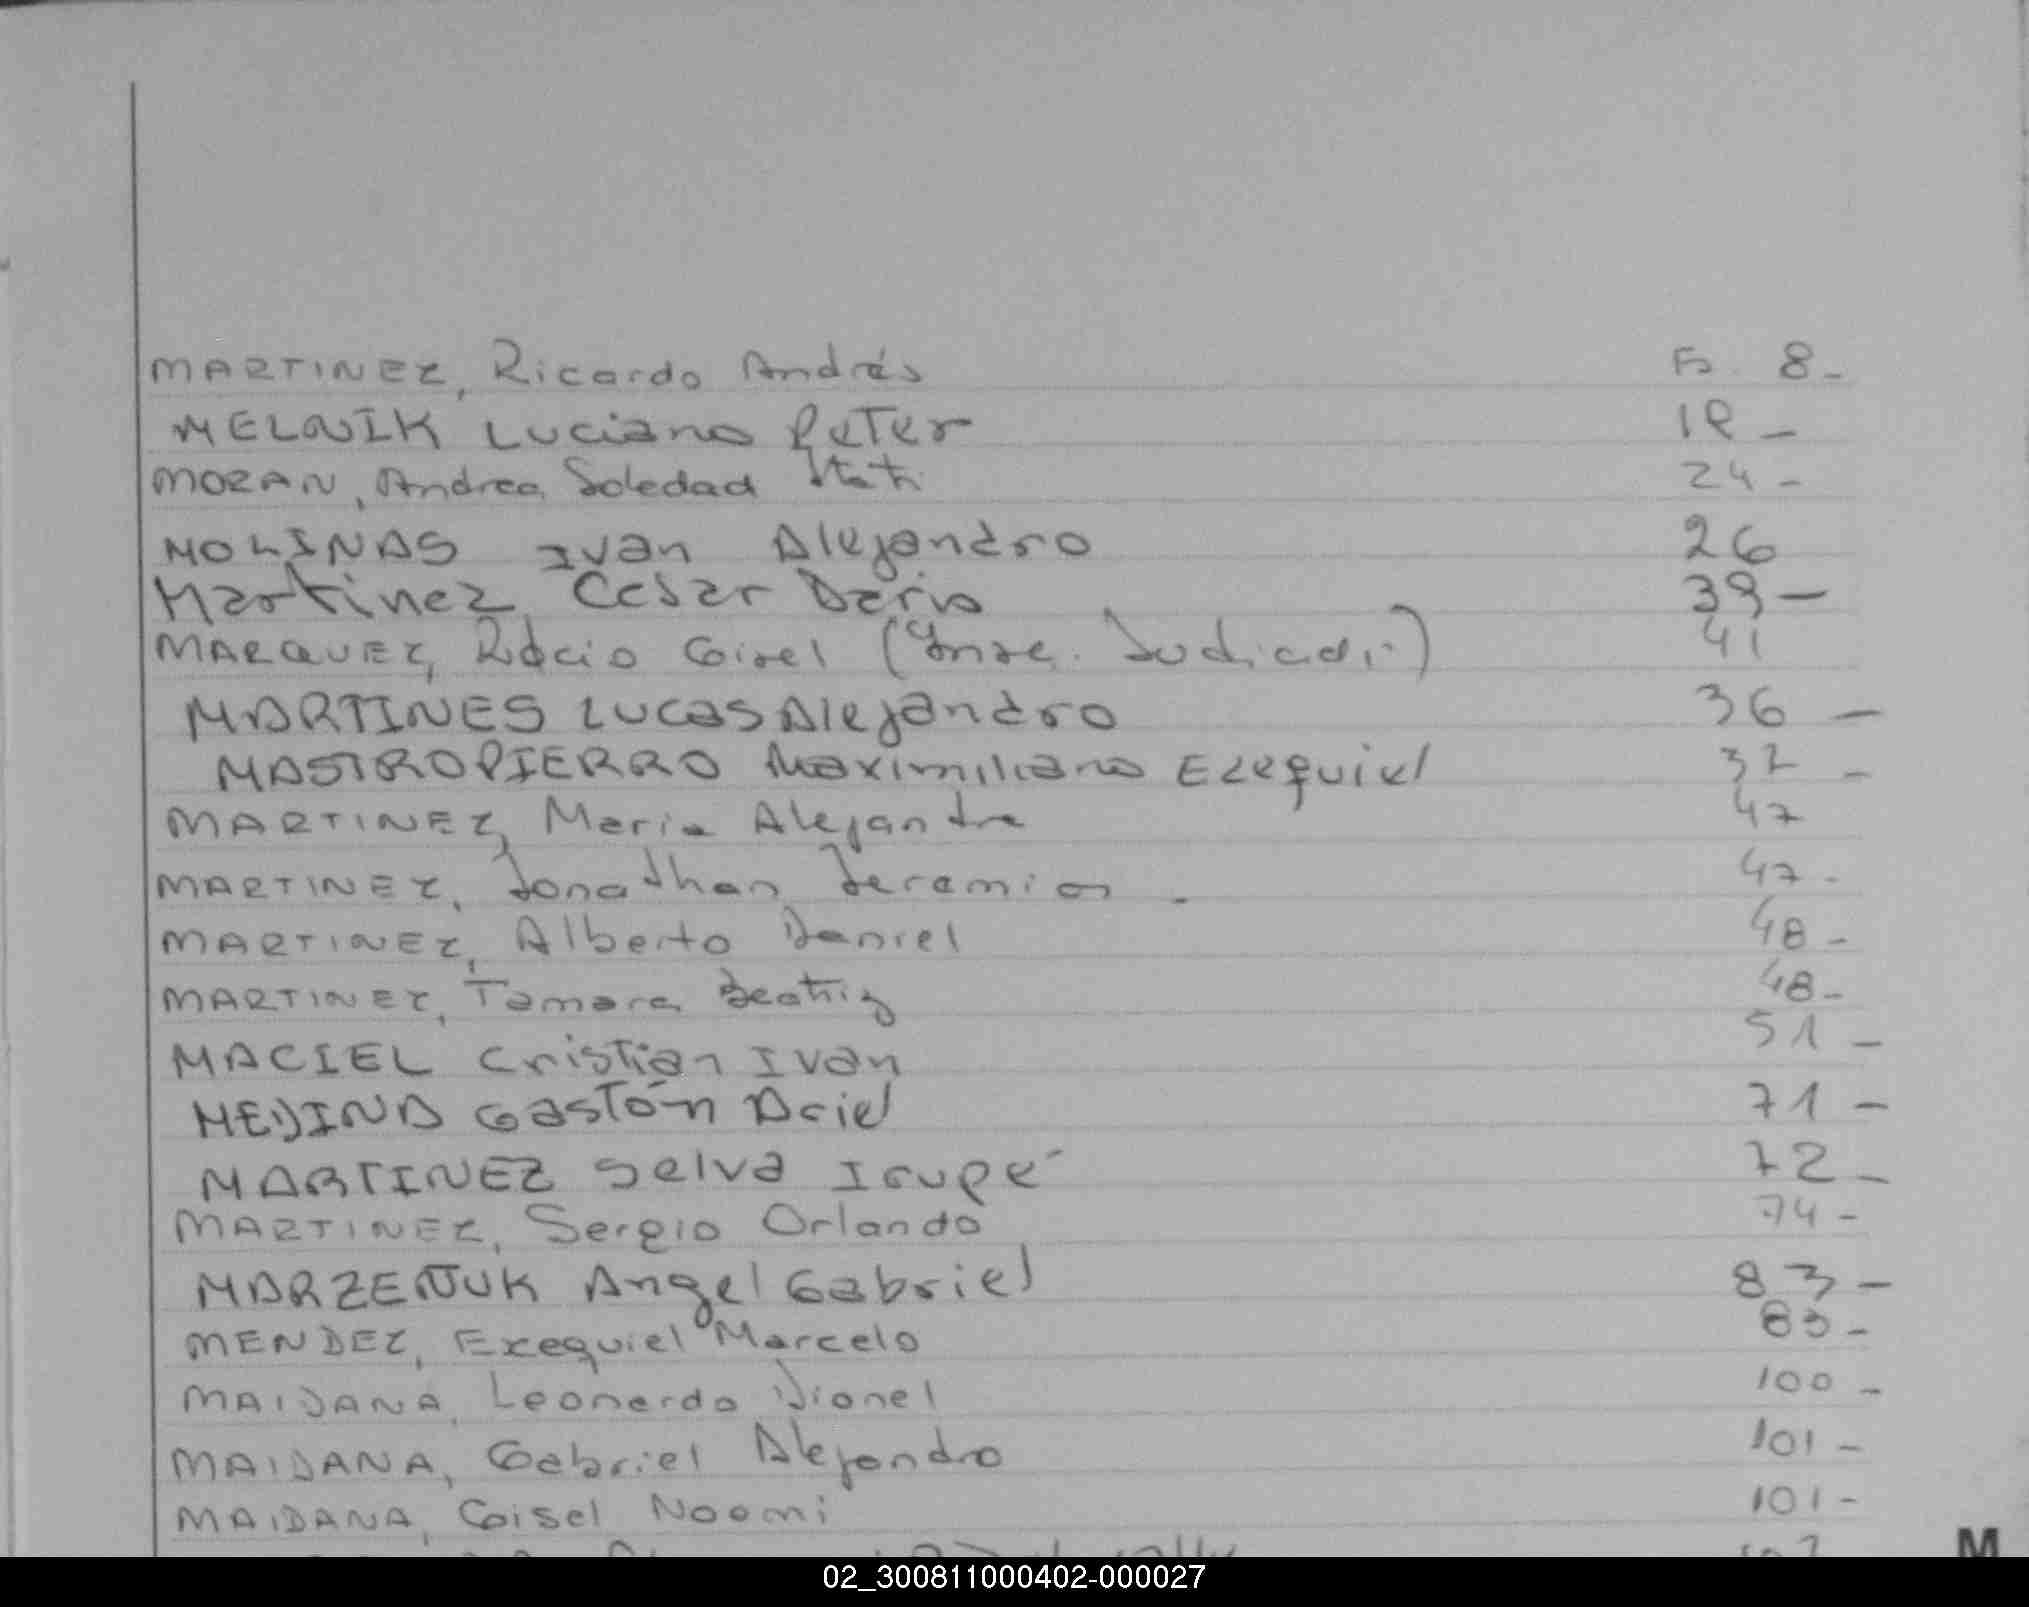 MARTINEZ, Ricardo Andrés Fo. 8-
MELNIK Luciano Peter 18-
MORAN, Andrea Soledad Itati 24-
MOLINAS Ivan Alejandro 26
Martinez, Cesar Dario 39-
MARQUEZ, Rocio Gisel (Insc. Judicial) 41
MARTINES Lucas Alejandro 36-
MASTROPIERRO Maximiliano Ezequiel 37-
MARTINEZ, Maria Alejandra 47
MARTINEZ, Jonathan Jeremias - 47-
MARTINEZ, Alberto Daniel 48-
MARTINEZ, Tamara Beatriz 48-
MACIEL Cristian Ivan 51-
MEDINA Gastón Ariel 71-
MARTINEZ Selva Irupé 72-
MARTINEZ, Sergio Orlando 74-
MARZENIUK Angel Gabriel 83-
MENDEZ, Exequiel Marcelo 83-
MAIDANA, Leonardo Dionel 100-
MAIDANA, Gabriel Alejandro 101-
MAIDANA, Gisel Noemi 101-
M
02_300811000402-000027